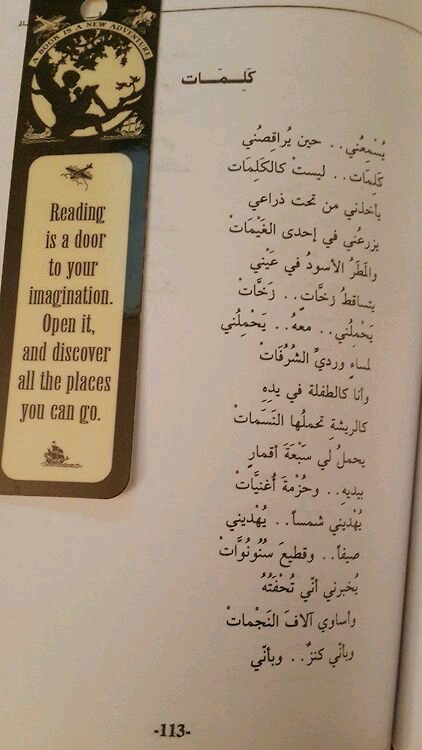 A BOOK IS A NEW ADVENTURE
Reading
is a door
to your
imagination.
Open it,
and discover
all the places
you can go.
كَلِمَات
يُسْمِعُني.. حين يُراقِصُني
كَلِمَات.. ليستْ كالكَلِمَات
يأخذني من تحت ذراعي
يزرعُني في إحدى الغَيْمَاتْ
والمَطَرُ الأسودُ في عَيْني
يتساقطُ زخَّاتٍ.. زخَّاتْ
يَحْمِلُني.. معهُ.. يَحْمِلُني
لمساءٍ ورديِّ الشُرُفَاتْ
وأنا كالطفلة في يدِهِ
كالريشةِ تحملُها النَسَمَاتْ
يحملُ لي سَبْعَةَ أقمارٍ
بيديهِ.. وحُزْمةَ أُغنيَّاتْ
يُهْديني شمساً.. يُهْديني
صيفاً.. وقطيعَ سُنُونُوَّاتْ
يُخبرني أنّي تُحْفَتُهُ
وأساوي آلافَ النَجْمَاتْ
وبأنّي كنزٌ.. وبأنّي
-113-